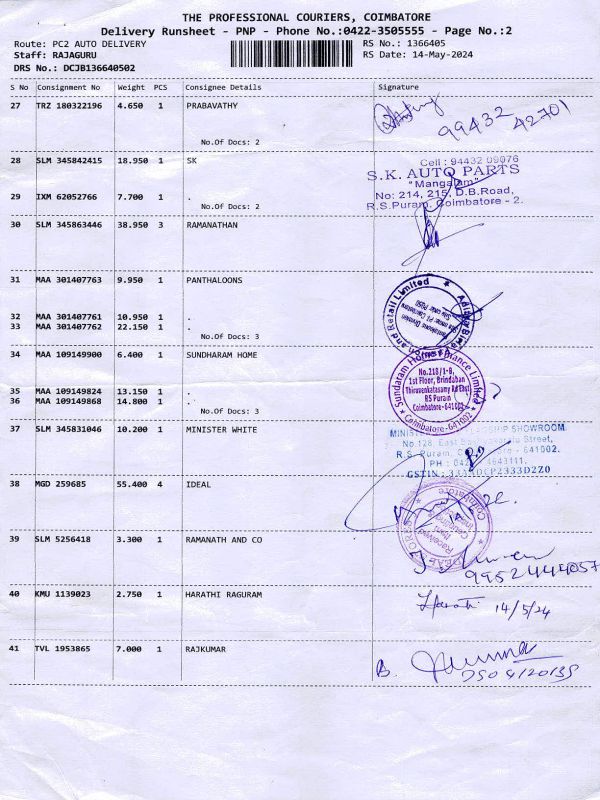 THE PROFESSIONAL COURIERS, COIMBATORE
Delivery Runsheet - PNP - Phone No.:0422-3505555 - Page No.:2
Route: PC2 AUTO DELIVERY RS No.: 1366405
Staff: RAJAGURU RS Date: 14-May-2024
DRS No.: DCJB136640502
S No Consignment No Weight PCS Consignee Details Signature
27 TRZ 180322196 4.650 1 PRABAVATHY
99432 42701
No.Of Docs: 2
28 SLM 345842415 18.950 1 SK
Cell : 94432 09076
S.K. AUTO PARTS
"Mangalam"
29 IXM 62052766 7.700 1 .
No: 214, 215, D.B.Road,
No.Of Docs: 2
R.S.Puram, Coimbatore - 2.
30 SLM 345863446 38.950 3 RAMANATHAN
31 MAA 301407763 9.950 1 PANTHALOONS
Retail Limited
32 MAA 301407761 10.950 1 .
33 MAA 301407762 22.150 1 .
No.Of Docs: 3
34 MAA 109149900 6.400 1 SUNDHARAM HOME
Sundaram Home Finance Limited
No.218/1-B,
1st Floor, Brindaban
Thiruvenkatasamy Rd East
RS Puram
Coimbatore-641002
Coimbatore-641002
35 MAA 109149824 13.150 1 .
36 MAA 109149868 14.800 1 .
No.Of Docs: 3
37 SLM 345831046 10.200 1 MINISTER WHITE
SHOWROOM
No.128, East
Street,
R.S. Puram, 641002.
PH :
GSTIN :
38 MGD 259685 55.400 4 IDEAL
Coimbatore
39 SLM 5256418 3.300 1 RAMANATH AND CO
9952444057
40 KMU 1139023 2.750 1 HARATHI RAGURAM
Harathi 14/5/24
41 TVL 1953865 7.000 1 RAJKUMAR
B.